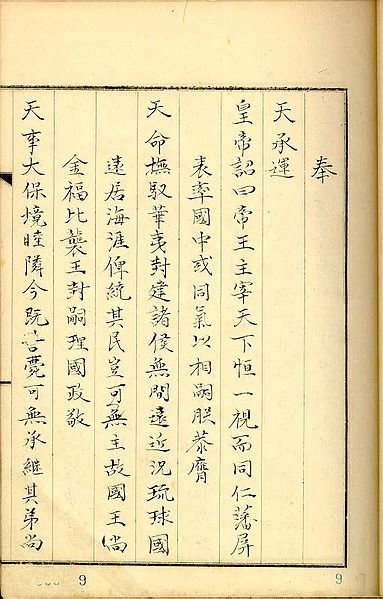 奉
天承運
皇帝詔曰帝王主宰天下恒一視而同仁藩屏
表率國中或同氣以相嗣朕恭膺
天命撫馭華夷封建諸侯無間遠近況琉球國
遠居海涯俾統其民豈可無主故國王尚
金福比襲王封嗣理國政敬
天事大保境睦隣今既告薨可無承繼其弟尚
9
9